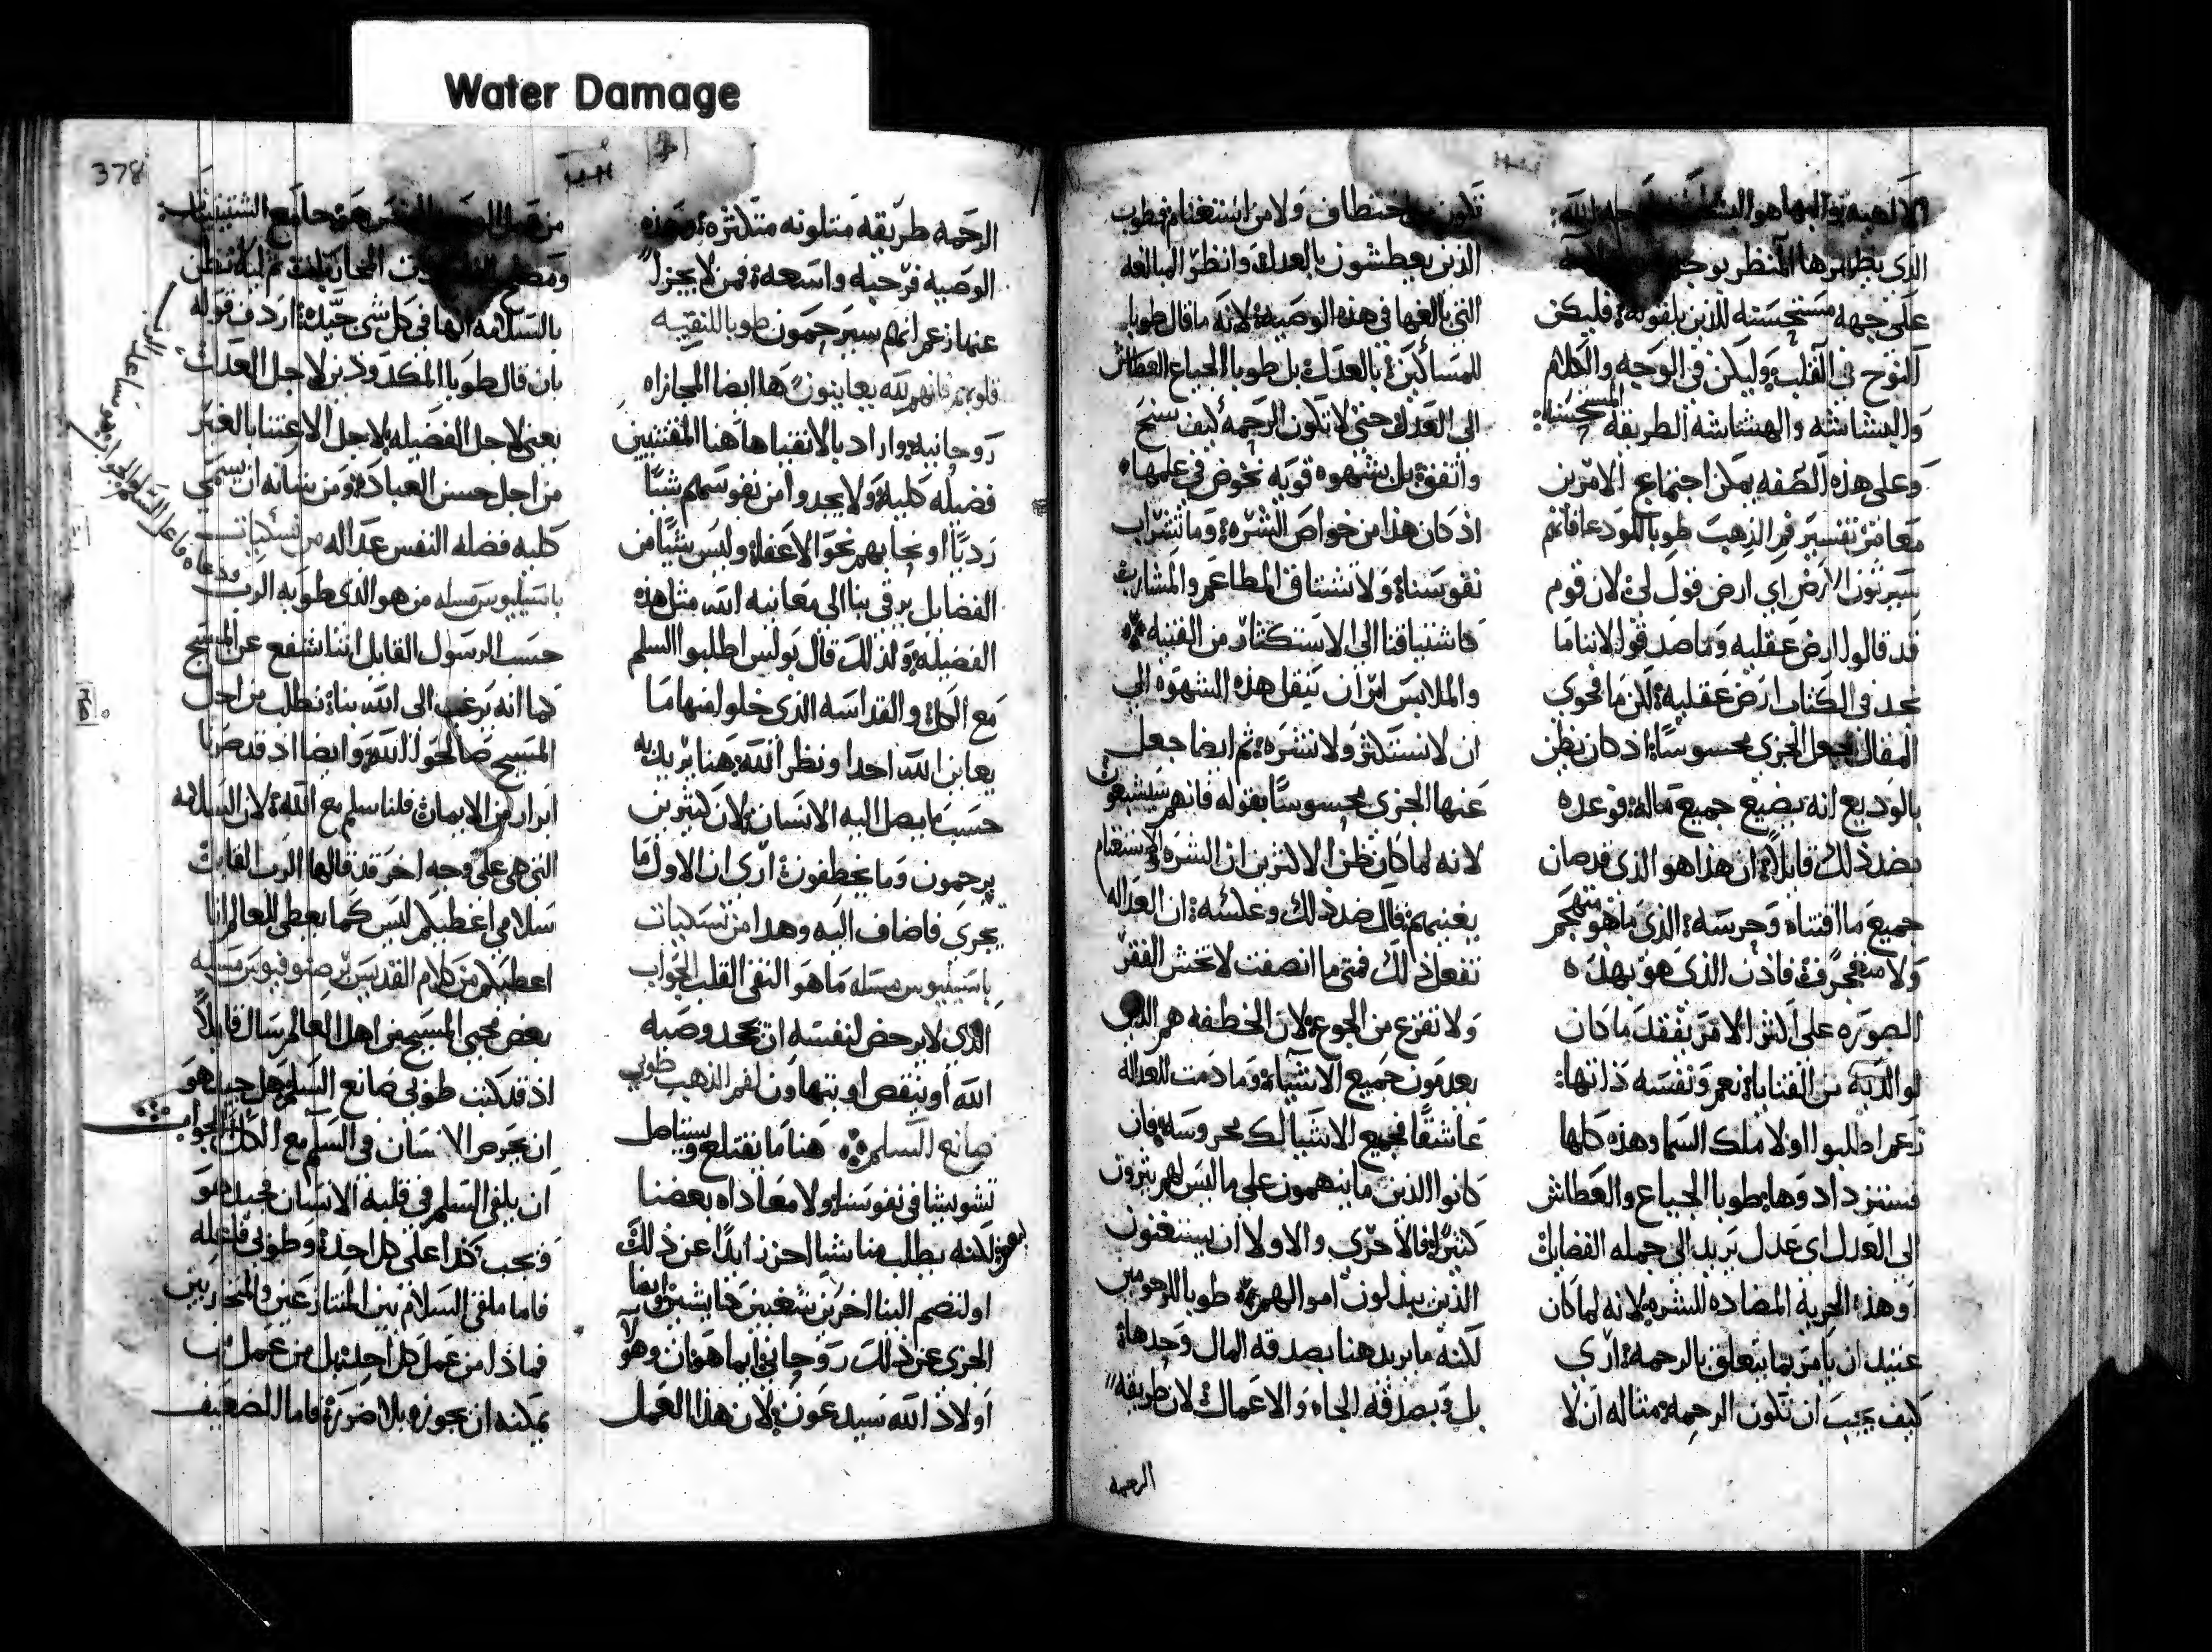 Water Damage
الذي يظهرها المنظر بوجه
على جهه مستحسنه للذين يلقونه فليكن
النوح في القلب وليكن في الوجه والكلام
والبشاشه والهشاشه الطريقه المستحسنه
وعلى هذه الصفه يمكن اجتماع الامرين
معا من تفسير فم الذهب طوبا للمودعا فانهم
سيرثون الارض اي ارض قول لي لان قوم
قد قالوا ارض عقليه وما صدقوا لاننا ما
نجد في الكتاب ارض عقليه لكن ما فحوى
المقال يجعل الجزى محسوسا اذ كان يظن
بالوديع انه يضيع جميع ماله فوعده
بضد ذلك قايلا ان هذا هو الذي قد صان
جميع ما اقتناه وحرسه الذي ما هو متهجم
ولا متعجرف فاذن الذي هو بهذه
الصوره على اكثر الامر يفقد ما كان
لوالديه من القنايا نعم ونفسه ذاتها
زعم اطلبوا اولا ملك السما وهذه كلها
فستزدادوها طوبا للجياع والعطاش
الى العدل اي عدل يريد الى جمله الفضايل
او هذه الجزيه المضاده للشره لانه لما كان
عتيد ان يامر بما يتعلق بالرحمه ارى
كيف يجب ان تكون الرحمه مثاله ان لا
تكون من اختطاف ولا من استغنام فطوب
الذين يعطشون بالعدل وانظر المبالغه
التي بالغها في هذه الوصيه لانه ما قال طوبا
للمساكين بالعدل بل طوبا للجياع العطاش
الى العدل حتى لا تكون الرحمه كيف سنح
واتفق بل بشهوه قويه نخوض في علمها
اذ كان هذا من خواص الشره وما تشراب
نفوسنا ولا تشتاق المطاعم والمشارب
كاشتياقنا الى الاستكثار من القنيه
والملابس امر ان ينقل هذه الشهوه الى
ان لا نستكثر ولا نشره ثم ايضا جعل
عنها الجزى محسوسا بقوله فانهم سيشبعون
لانه لما كان يظن الاكثرين ان الشره والاستغنام
يغنيهم قال ضد ذلك وعكسه ان العداله
تفعل ذلك فمتى ما انصفت لا تخش الفقر
ولا تفزع من الجوع لان الخطفه هم الذين
يعدمون جميع الاشيا وما دمت للعداله
عاشقا فجميع الاشيا لك محروسه فان
كانوا الذين ما يتهمون على ما ليس لهم يثرون
كثيرا فالاحرى والاولا ان يستغنون
الذين يبذلون اموالهم طوبا للرحومين
لكنه ما يريد هنا بصدقه المال وحدها
بل وبصدقه الجاه والاعمال لان طريقه
الرحمه
378
الرحمه طريقه متلونه متكثره وهذه
الوصيه فرحيه واسعه فمن لا يجزل
عنها زعم انهم سيرحمون طوبا للنقيه
قلوبهم فانهم لله يعاينون ها ايضا المجازاه
روحانيه واراد بالاتقيا هاهنا المقتنيين
فضيله كليه ولا يجدوا من نفوسهم شيا
رديا او نحا بهم نحو الاعفا وليس شيا من
الفضايل يرقى بنا الى معاينه الله مثل هذه
الفضيله ولذلك قال بولس اطلبوا السلم
مع الكل والقداسه الذي خلوا منها ما
يعاين الله احدا ونظر الله هنا يريد به
حسب ما يصل اليه الانسان لان كثيرين
يرحمون وما يخطفون ارى ان الاول ما
يجزى فاضاف اليه وهدا من نسكيات
باسيليوس مسله ما هو النقي القلب الجواب
الذي لا يرخص لنفسه ان يجحد وصيه
الله او ينقص او يتهاون لفم الذهب طوبي
صانع السلم هنا ما يقتلع ويستاصل
تشويشا في نفوسنا ولا معاداه بعضنا
بعض لكنه يطلب منا شيا اخر زايدا عن ذلك
او لنضم الينا اخرين شغبين
الجزى عن ذلك روحاني ايما هو ان وهو
اولاد الله سيدعون لان هذا العمل
بالسلامه انها في كل شي جيده اردف قوله
بان قال طوبا المكدودين لاجل العدل
يعني لاجل الفضيله لاجل الاعتنا بالغير
من اجل حسن العباده ومن شانه ان يسمي
كليه فضيله النفس عداله من نسكيات
باسيليوس مسله من هو الذي طوبه الرب
حسب الرسول القايل اننا نشفع عن المسيح
كما انه يرغب الى الله بنا نطلب من اجل
المسيح صالحوا الله وايضا اذ قد صرنا
ابرار من الايمان فلنا سلم مع الله لان السلامه
التي هي على وجه اخر قد قالها الرب القايل
سلامي اعطيكم ليس كما يعطي العالم انا
اعطيكم من كلام القديس
بعض محبي المسيح من اهل العالم سال قايلا
اذ قد كتب طوبى صانع السلم هل جيد هو
ان يحرص الانسان في السلم مع الكل الجواب
ان يلقي السلم في قلبه الانسان فجيد هو
فيجب كذا على كل احد وطوبى فاعله
فاما ملقي السلام بين المتنازعين والمتحاربين
فما ذا من عمل كل احد بل من عمل من
يمكنه ان يجوزه بلا ضرر فاما الضعيف